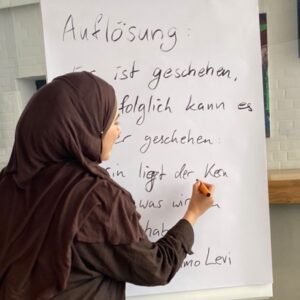 Auflösung:
ist geschehen,
folglich kann es
geschehen:
liegt der Kern
was wir
Levi